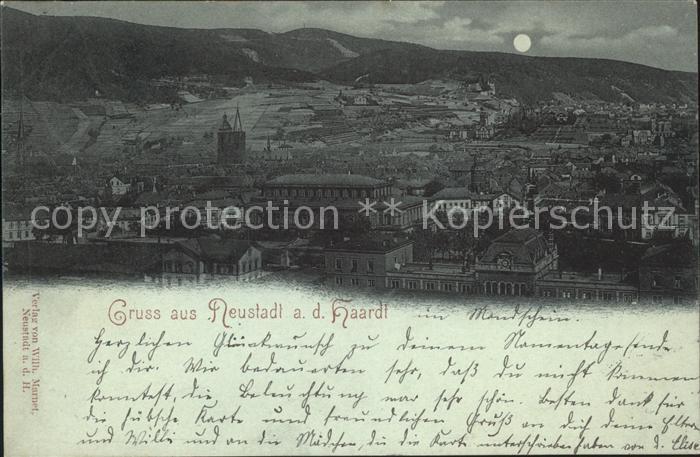 copy protection ** Kopierschutz
Gruss aus Neustadt a. d. Haardt im Mondschein.
Verlag von Wilh. Marnet,
Neustadt a. d. H.
Herzlichen Glückwunsch zu deinem Namenstage sende
ich dir. Wir bedauerten sehr, daß du nicht kommen
konntest, die Beleuchtung war sehr schön. Besten Dank für
die hübsche Karte und freundlichen Gruß an dich deine Eltern
und Willi und an die Mädchen, die die Karte unterschrieben haben von d. Elise